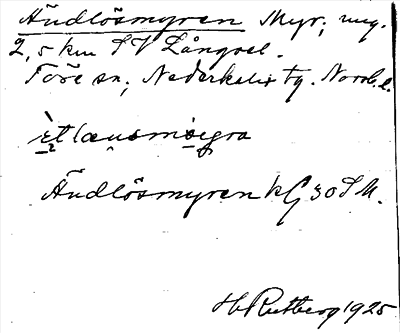 Ändlösmyren Myr; ung.
2,5 km SV Långsel.
Töre sn; Nederkalix tg. Norrb. l.
Ändlösmyren kG 30 S M.
H. Rutberg 1925